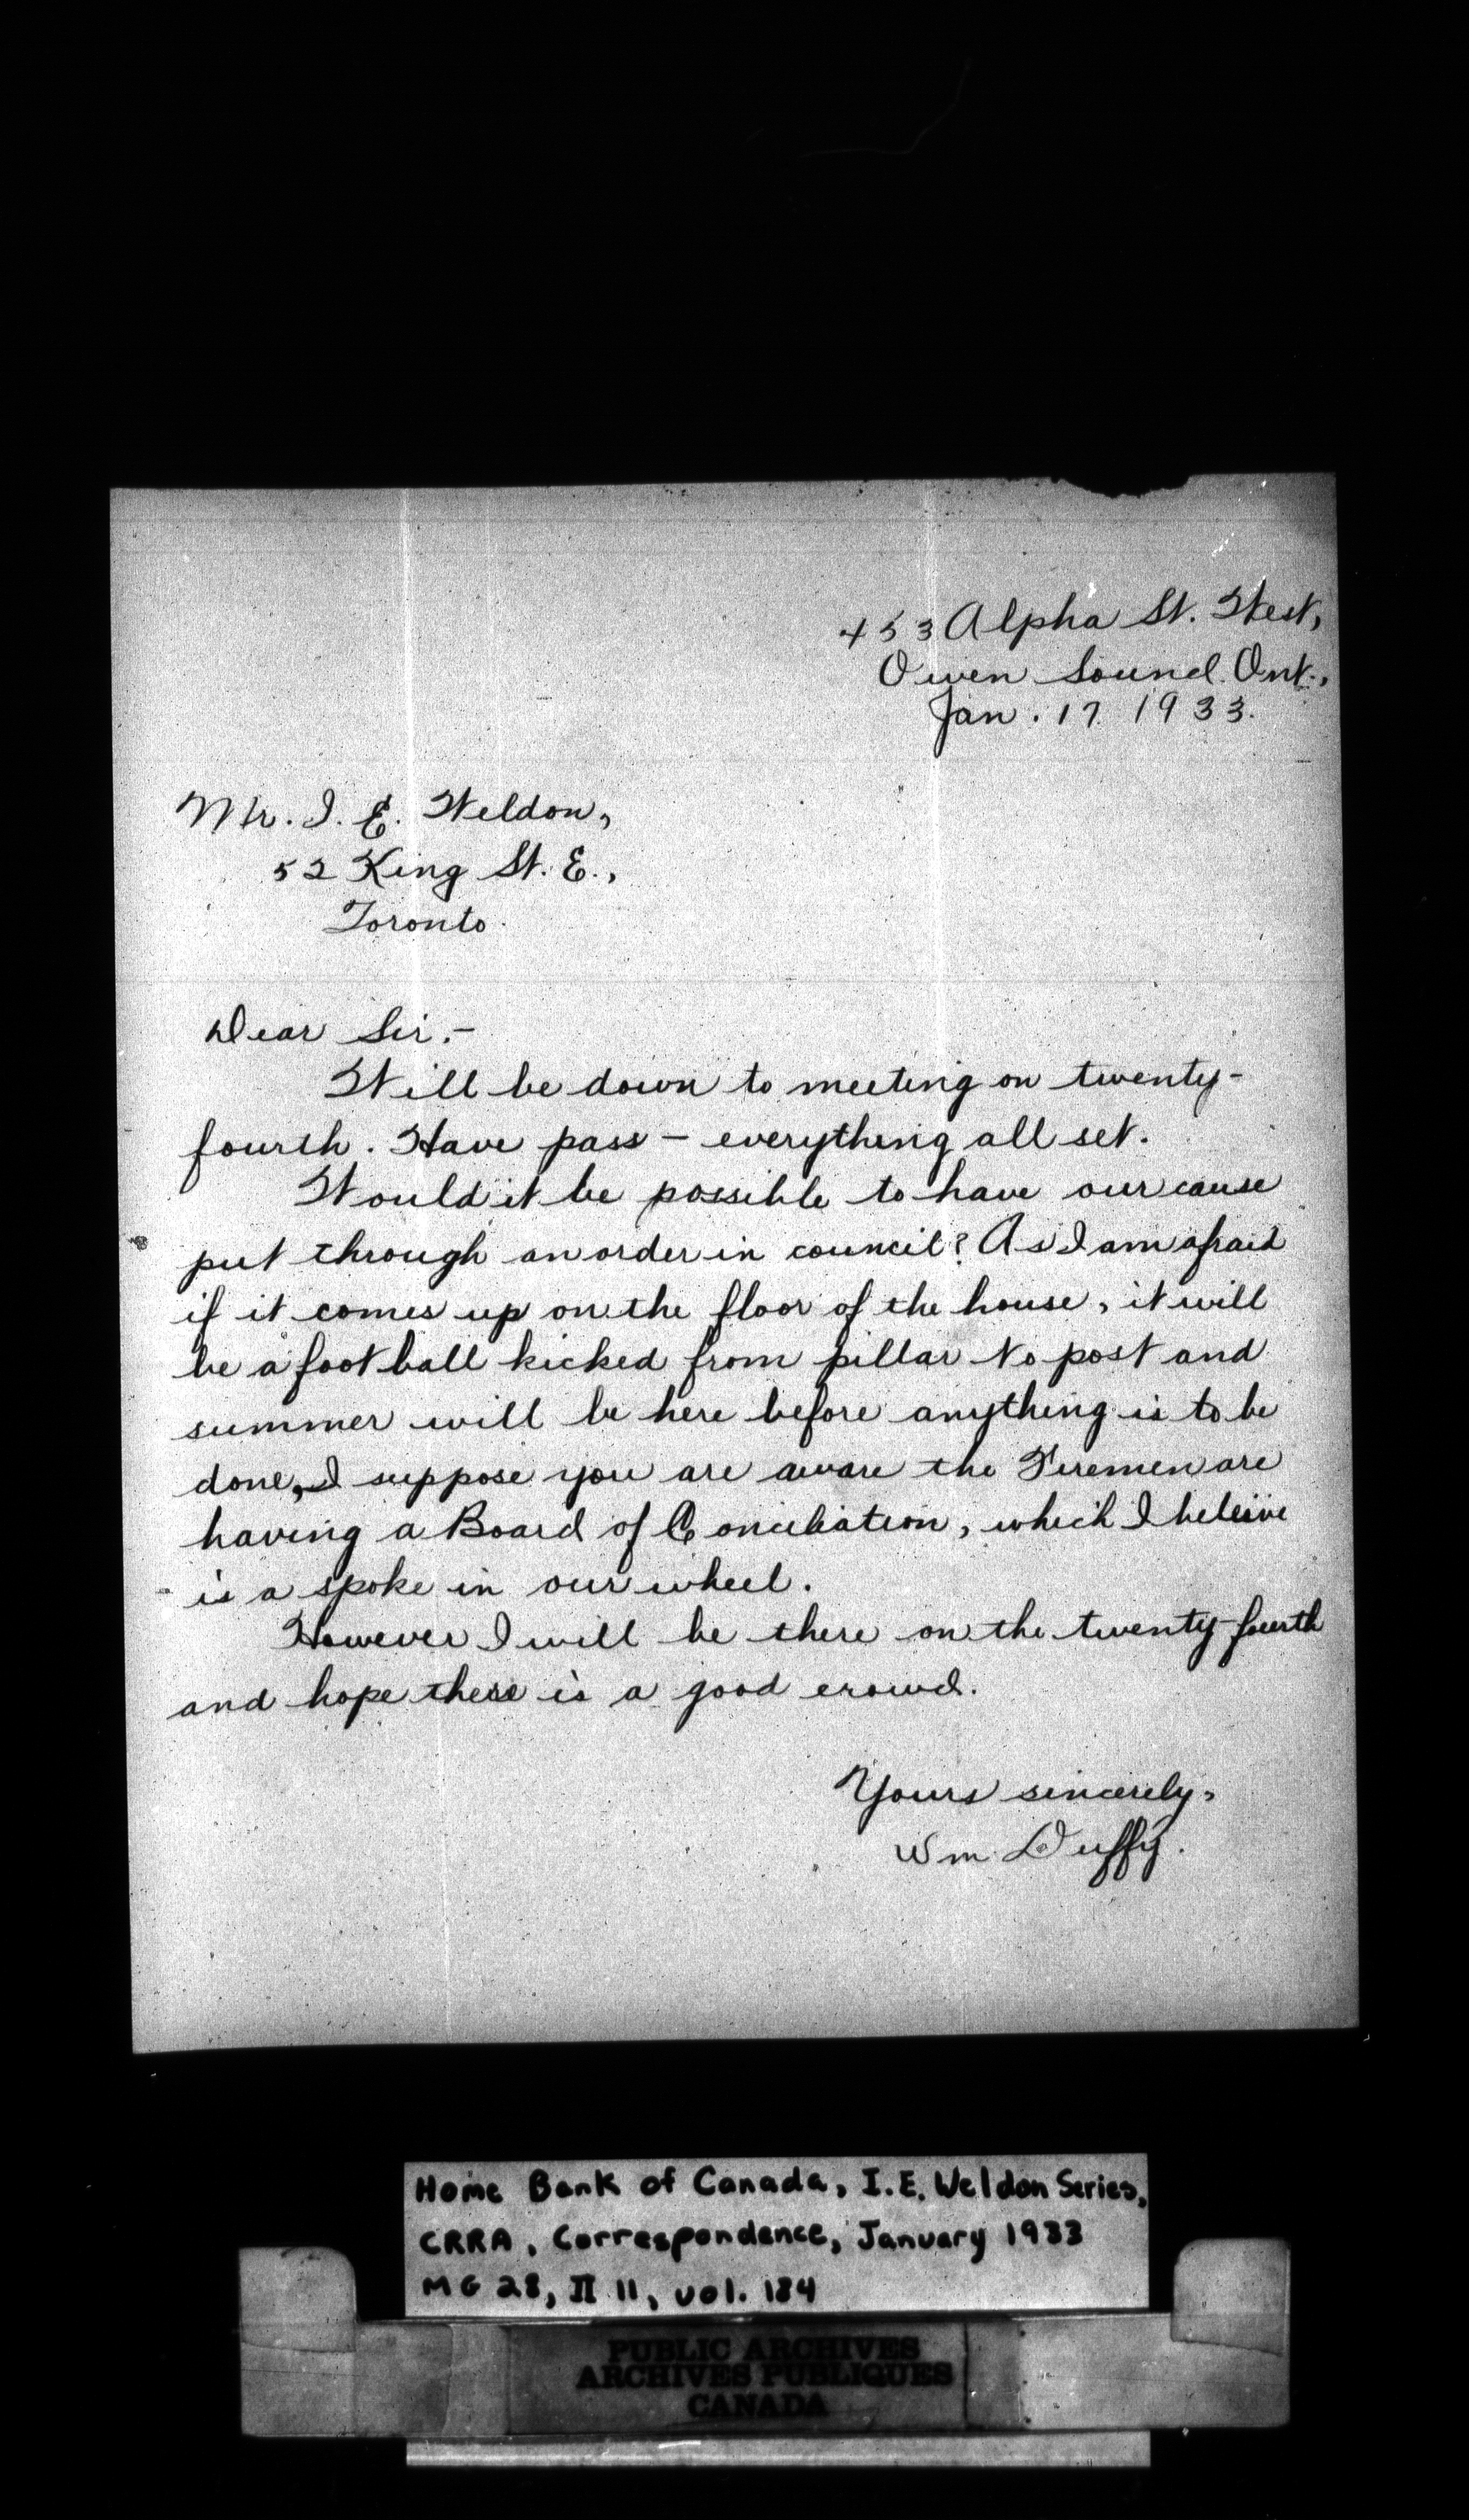 453 Alpha St. West,
Owen Sound. Ont.,
Jan. 17. 1933.
Mr. I. E. Weldon,
52 King St. E.,
Toronto.
Dear Sir.-
Will be down to meeting on twenty-
fourth. Have pass - everything all set.
Would it be possible to have our cause
put through an order in council? As I am afraid
if it comes up on the floor of the house, it will
be a foot ball kicked from pillar to post and
summer will be here before anything is to be
done, I suppose you are aware the Firemen are
having a Board of Conciliation, which I beleive
is a spoke in our wheel.
However I will be there on the twenty-fourth
and hope there is a good crowd.
Yours sincerely,
Wm Duffy.
Home Bank of Canada, I.E. Weldon Series,
CRRA, Correspondence, January 1933
MG 28, II 11, vol. 184
PUBLIC ARCHIVES
ARCHIVES PUBLIQUES
CANADA